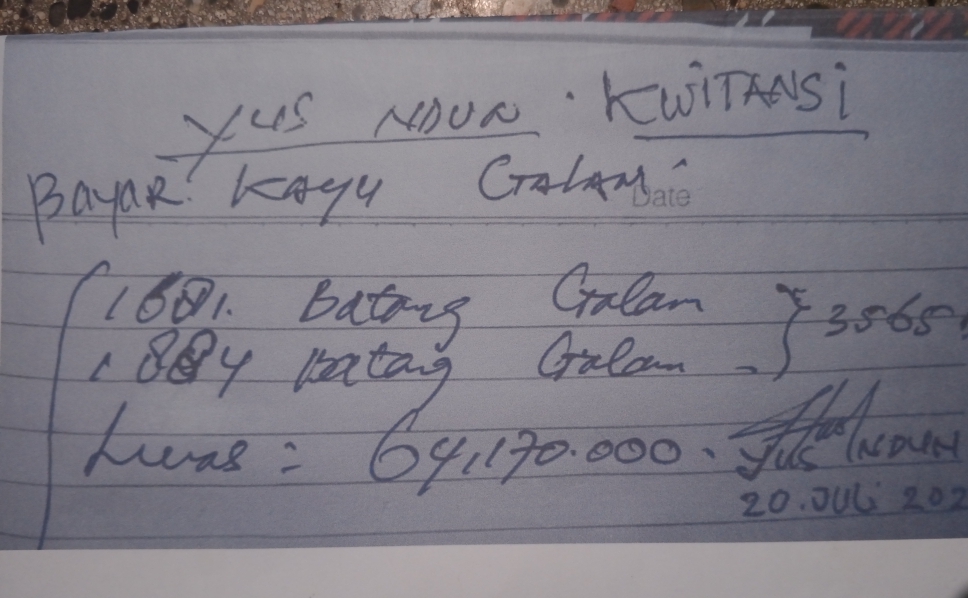 YUS NDUN. KWITANSI
Bayar. KAYU GALAM.
Date
1681. Batang Galam } 3565
1884 Batang Galam -
Lunas = 64,170.000.
YUS NDUN
20. JULI 202